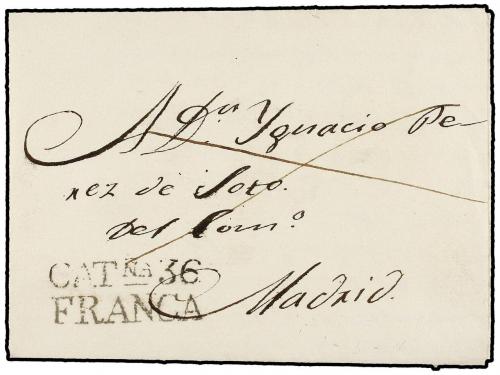 A Dn Ygnacio Pe-
rez de Soto.
del Com.o
Madrid.
CATÑA 36
FRANCA